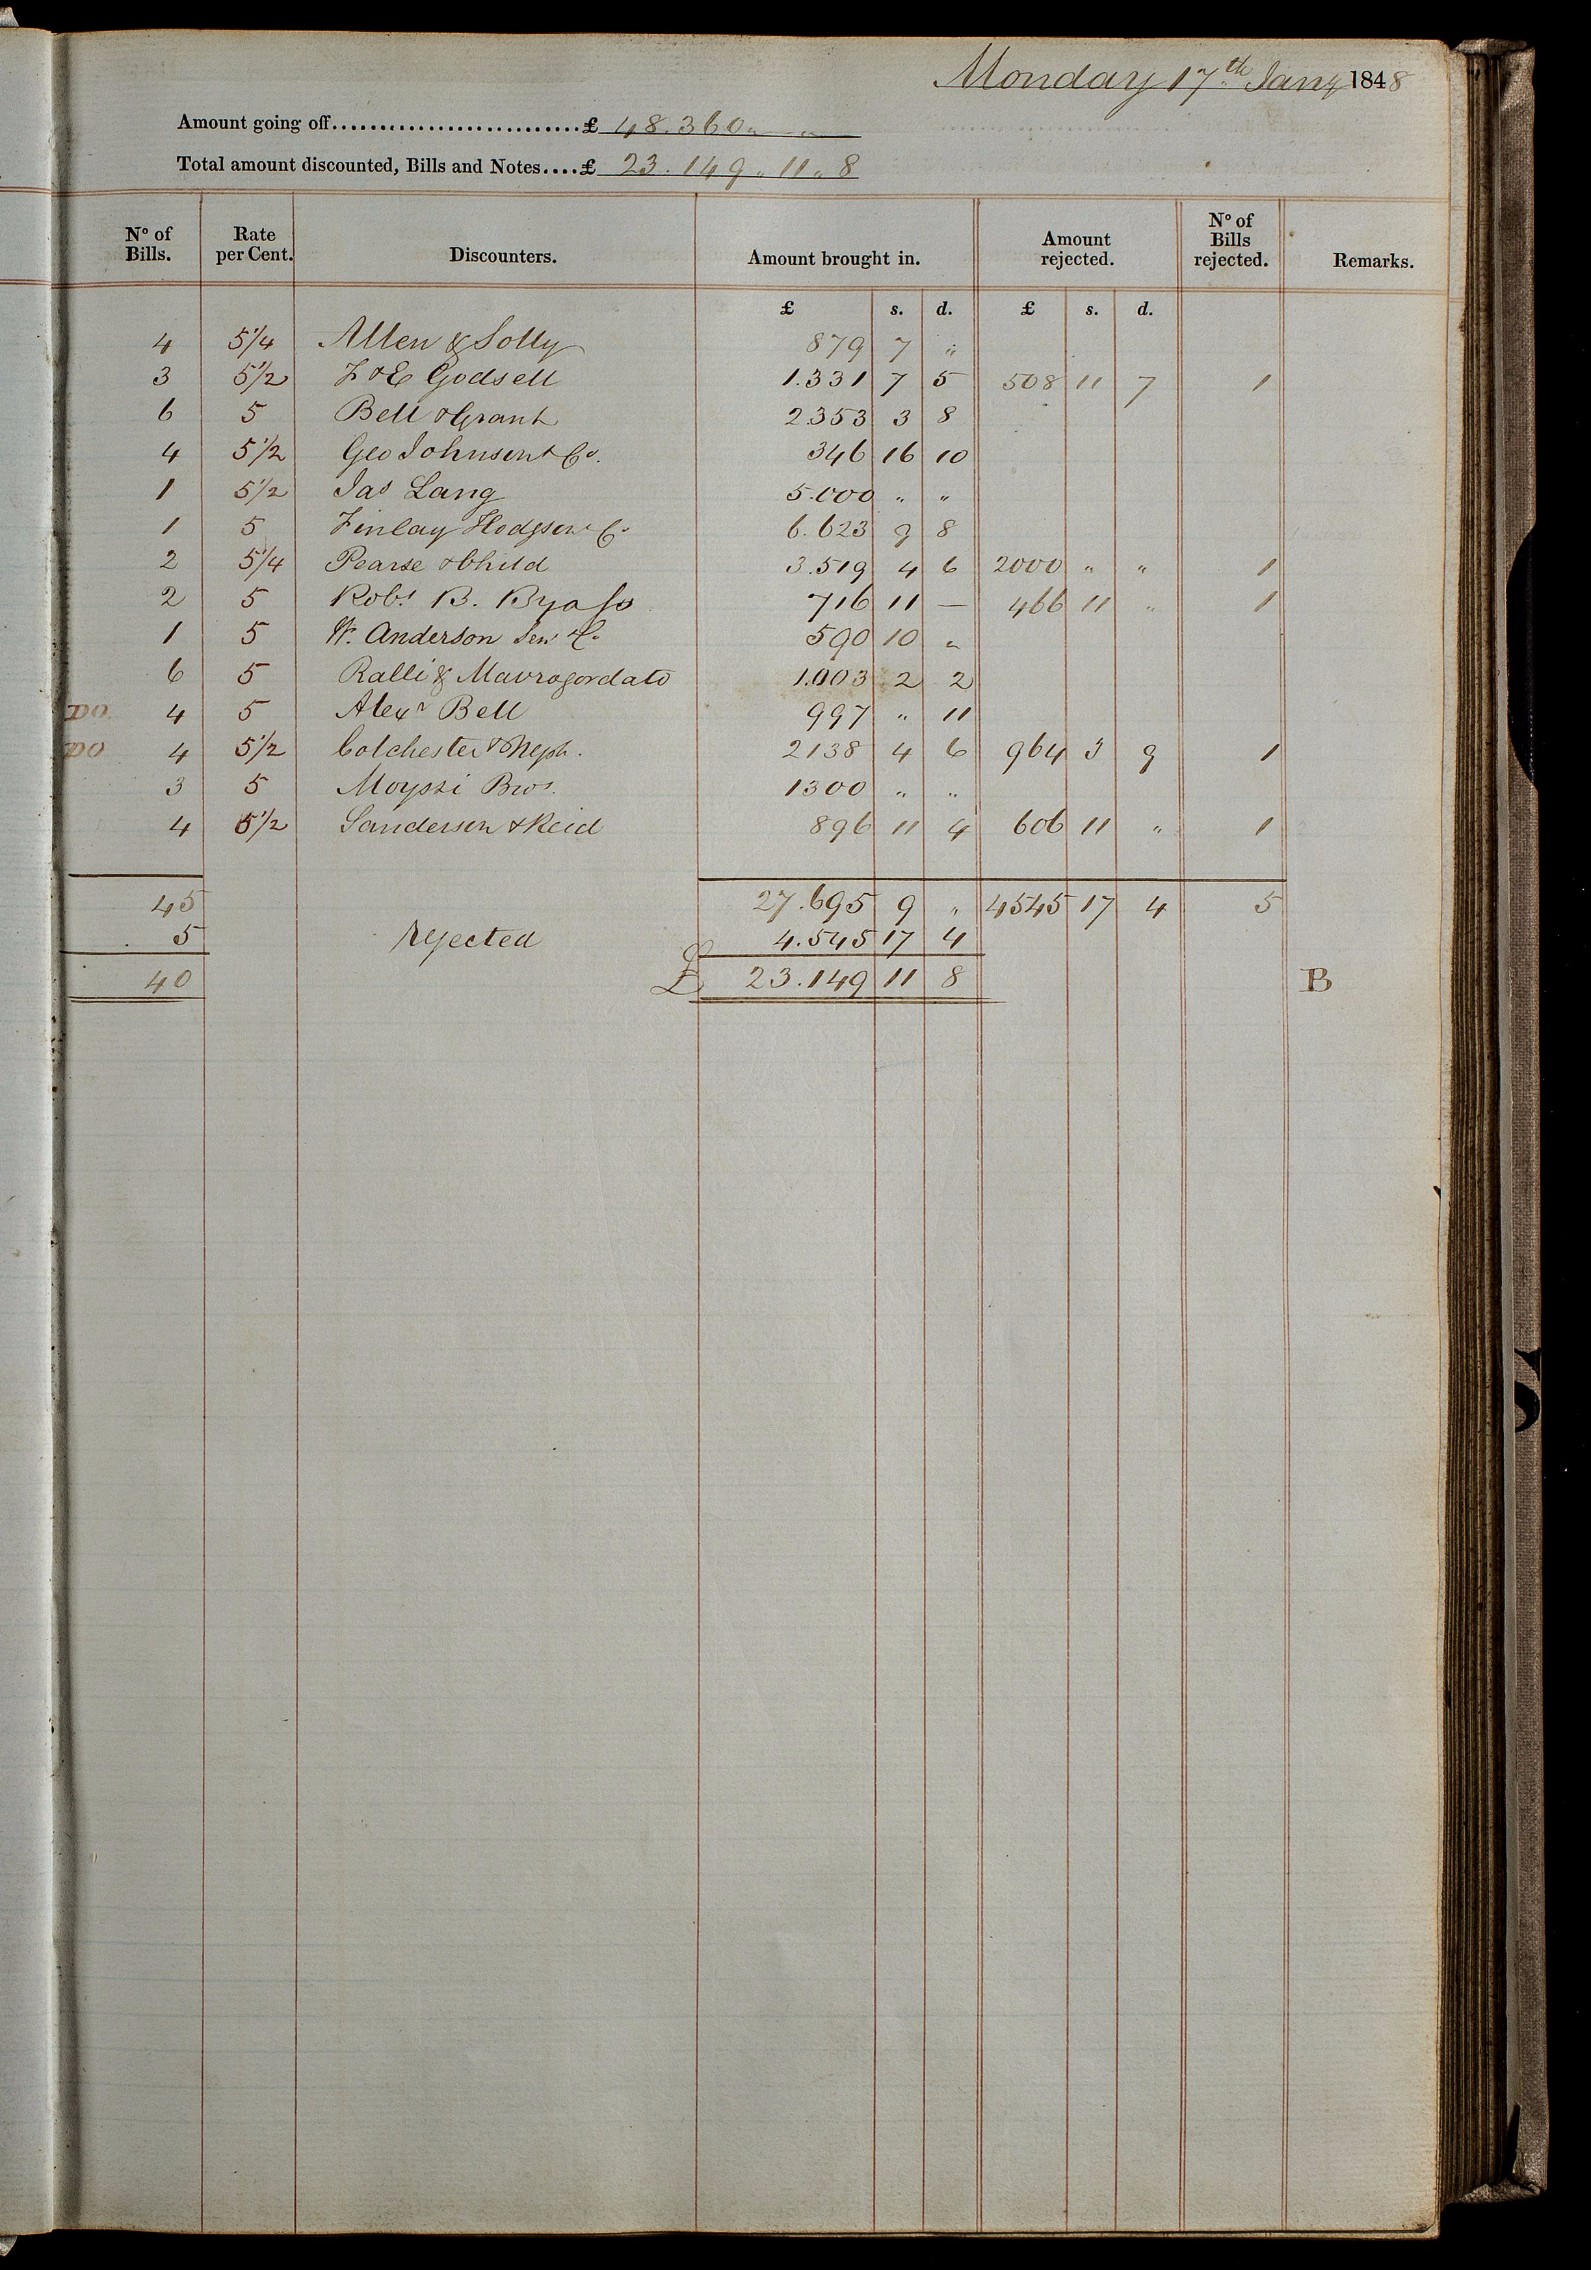 Monday 17th Jany 1848
Amount going off..........................£ 48.360 „ — „
Total amount discounted, Bills and Notes....£ 23.149 „ 11 „ 8
No of Bills. Rate per Cent. Discounters. Amount brought in. Amount rejected. No of Bills rejected. Remarks.
£ s. d. £ s. d.
4 5 1/4 Allen & Solly 879 7 „
3 5 1/2 F & E Godsell 1.331 7 5 508 11 7 1
6 5 Bell & Grant 2353 3 8
4 5 1/2 Geo Johnson & Co. 346 16 10
1 5 1/2 Jas Lang 5.000 „ „
1 5 Finlay Hodgson & Co 6.623 9 8
2 5 1/4 Pearse & Child 3.519 4 6 2000 „ „ 1
2 5 Robt. B. Byass 716 11 — 466 11 „ 1
1 5 W. Anderson Sen & Co 590 10 „
6 5 Ralli & Mavrogordato 1.003 2 2
DO 4 5 Alexr Bell 997 „ 11
DO 4 5 1/2 Colchester & Neph. 2138 4 6 964 3 9 1
3 5 Moyssi Bros. 1300 „ „
4 5 1/2 Sanderson & Reid 896 11 4 606 11 „ 1
45 27.695 9 „ 4545 17 4 5
5 Rejected 4.545 17 4
40 £ 23.149 11 8 B